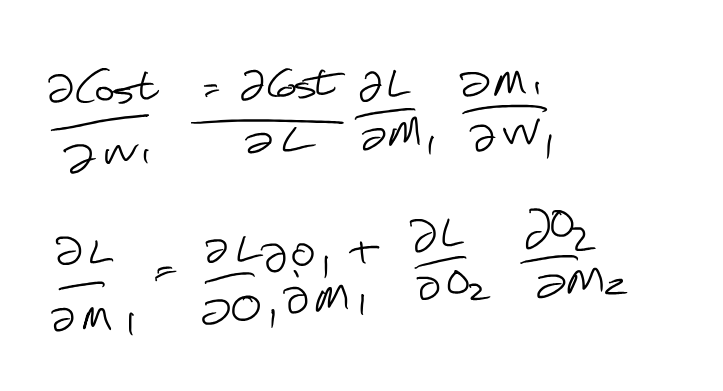 ∂Cost/∂W₁ = ∂Cost/∂L ∂L/∂M₁ ∂M₁/∂W₁
∂L/∂M₁ = ∂L/∂O₁ ∂O₁/∂M₁ + ∂L/∂O₂ ∂O₂/∂M₂